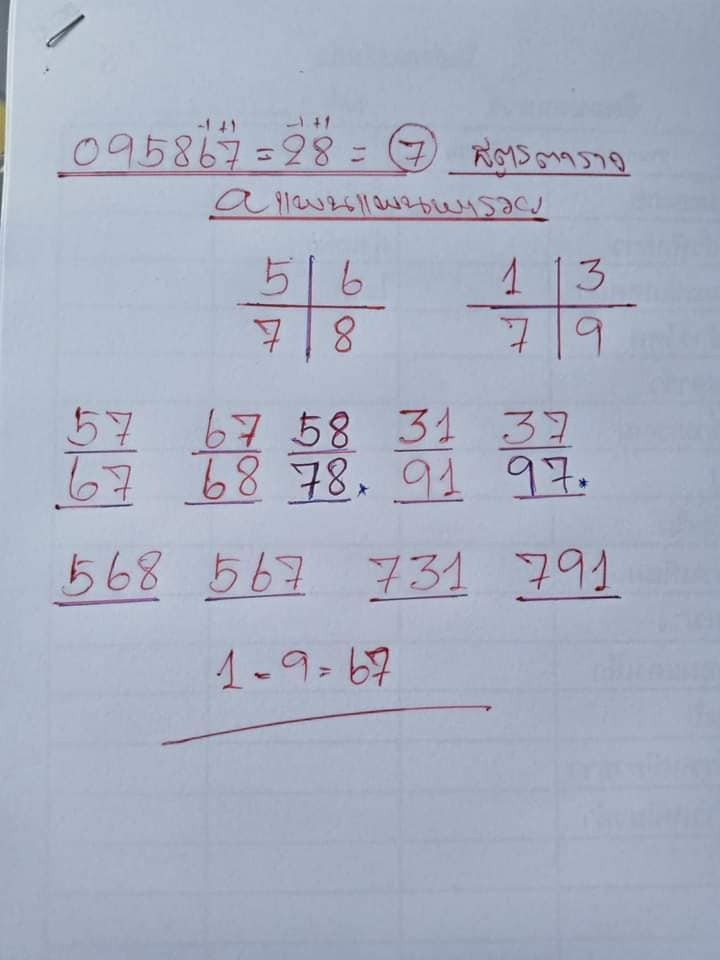 -1 +1 -1 +1
095867 = 28 = 7 สูตรตาราง
แม่นแม่นพารวย
5 6 1 3
7 8 7 9
57 67 58 31 37
67 68 78.* 91 97.*
568 567 731 791
1 - 9 = 67